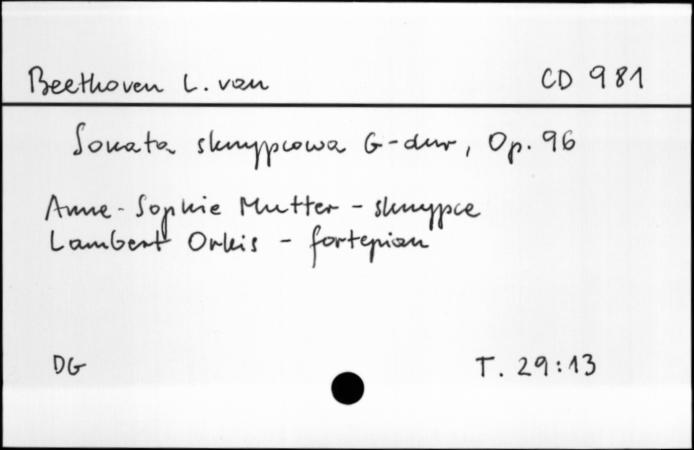 Beethoven L. van CD 981
Sonata skrzypcowa G-dur, Op. 96
Anne-Sophie Mutter - skrzypce
Lambert Orkis - fortepian
DG T. 29:13